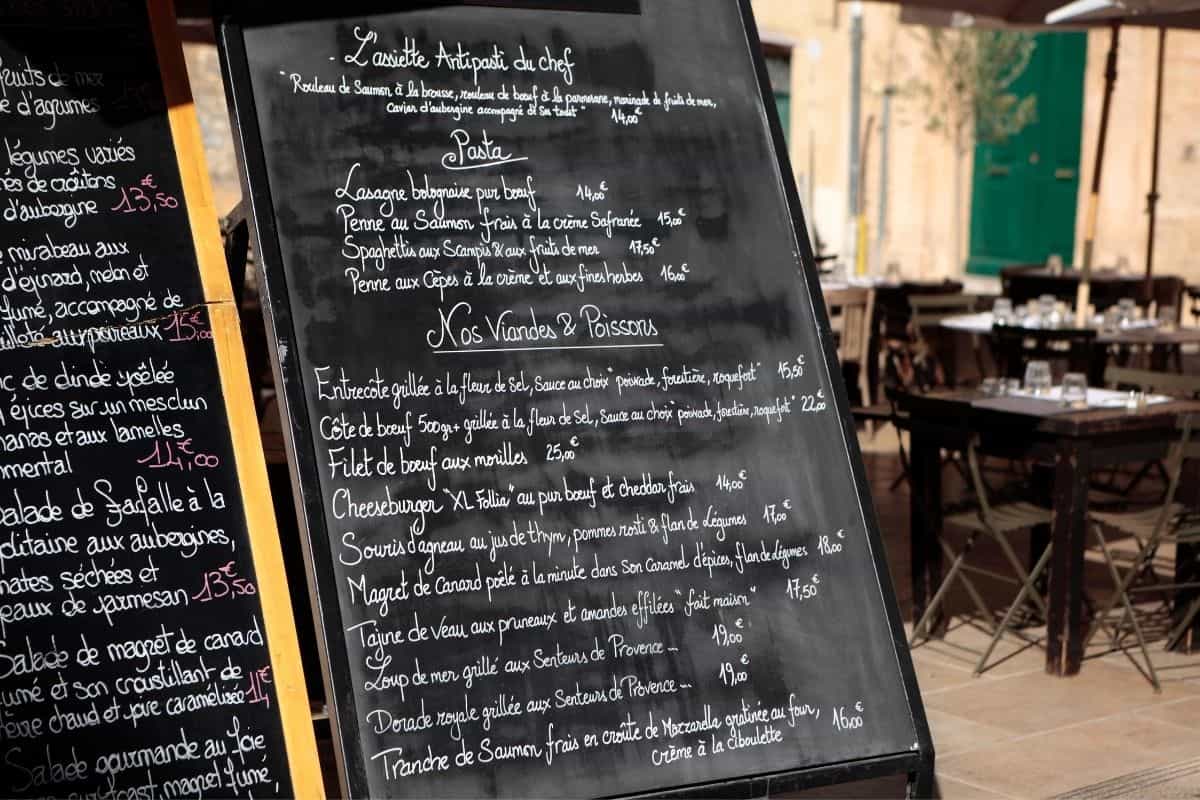 fruits de mer
e d'agrumes
légumes variés
nés de croûtons
d'aubergine 13,50€
mirabeau aux
d'épinard, melon et
fumé, accompagné de
aux poireaux 15,00€
c de dinde poêlée
épices sur un mesclun
nanas et aux lamelles
mental 14,00€
Salade de farfalle à la
politaine aux aubergines,
mates séchées et
eaux de parmesan 13,50€
Salade de magret de canard
fumé et son croustillant de
chèvre chaud et poire caramélisée 14€
Salade gourmande au foie
sur toast, magret fumé,
- L'assiette Antipasti du chef
"Rouleau de Saumon à la brousse, rouleau de bœuf à la parmesane, marinade de fruits de mer,
Caviar d'aubergine accompagné de son toast" 14,00€
Pasta
Lasagne bolognaise pur bœuf 14,00€
Penne au Saumon frais à la crème Safranée 15,00€
Spaghettis aux Scampis & aux fruits de mer 17,50€
Penne aux Cèpes à la crème et aux fines herbes 16,00€
Nos Viandes & Poissons
Entrecôte grillée à la fleur de Sel, Sauce au choix "poivrade, forestière, roquefort" 15,50€
Côte de bœuf 500gr+ grillée à la fleur de Sel, Sauce au choix "poivrade, forestière, roquefort" 22,00€
Filet de bœuf aux morilles 25,00€
Cheeseburger "XL Follia" au pur bœuf et cheddar frais 14,00€
Souris d'agneau au jus de thym, pommes rosti & flan de Légumes 17,00€
Magret de Canard poêlé à la minute dans Son Caramel d'épices, flan de Légumes 18,00€
Tajine de Veau aux pruneaux et amandes effilées "fait maison" 17,50€
Loup de mer grillé aux Senteurs de Provence ... 19,00€
Dorade royale grillée aux Senteurs de Provence ... 19,00€
Tranche de Saumon frais en croûte de Mozzarella gratinée au four, 16,00€
crème à la ciboulette